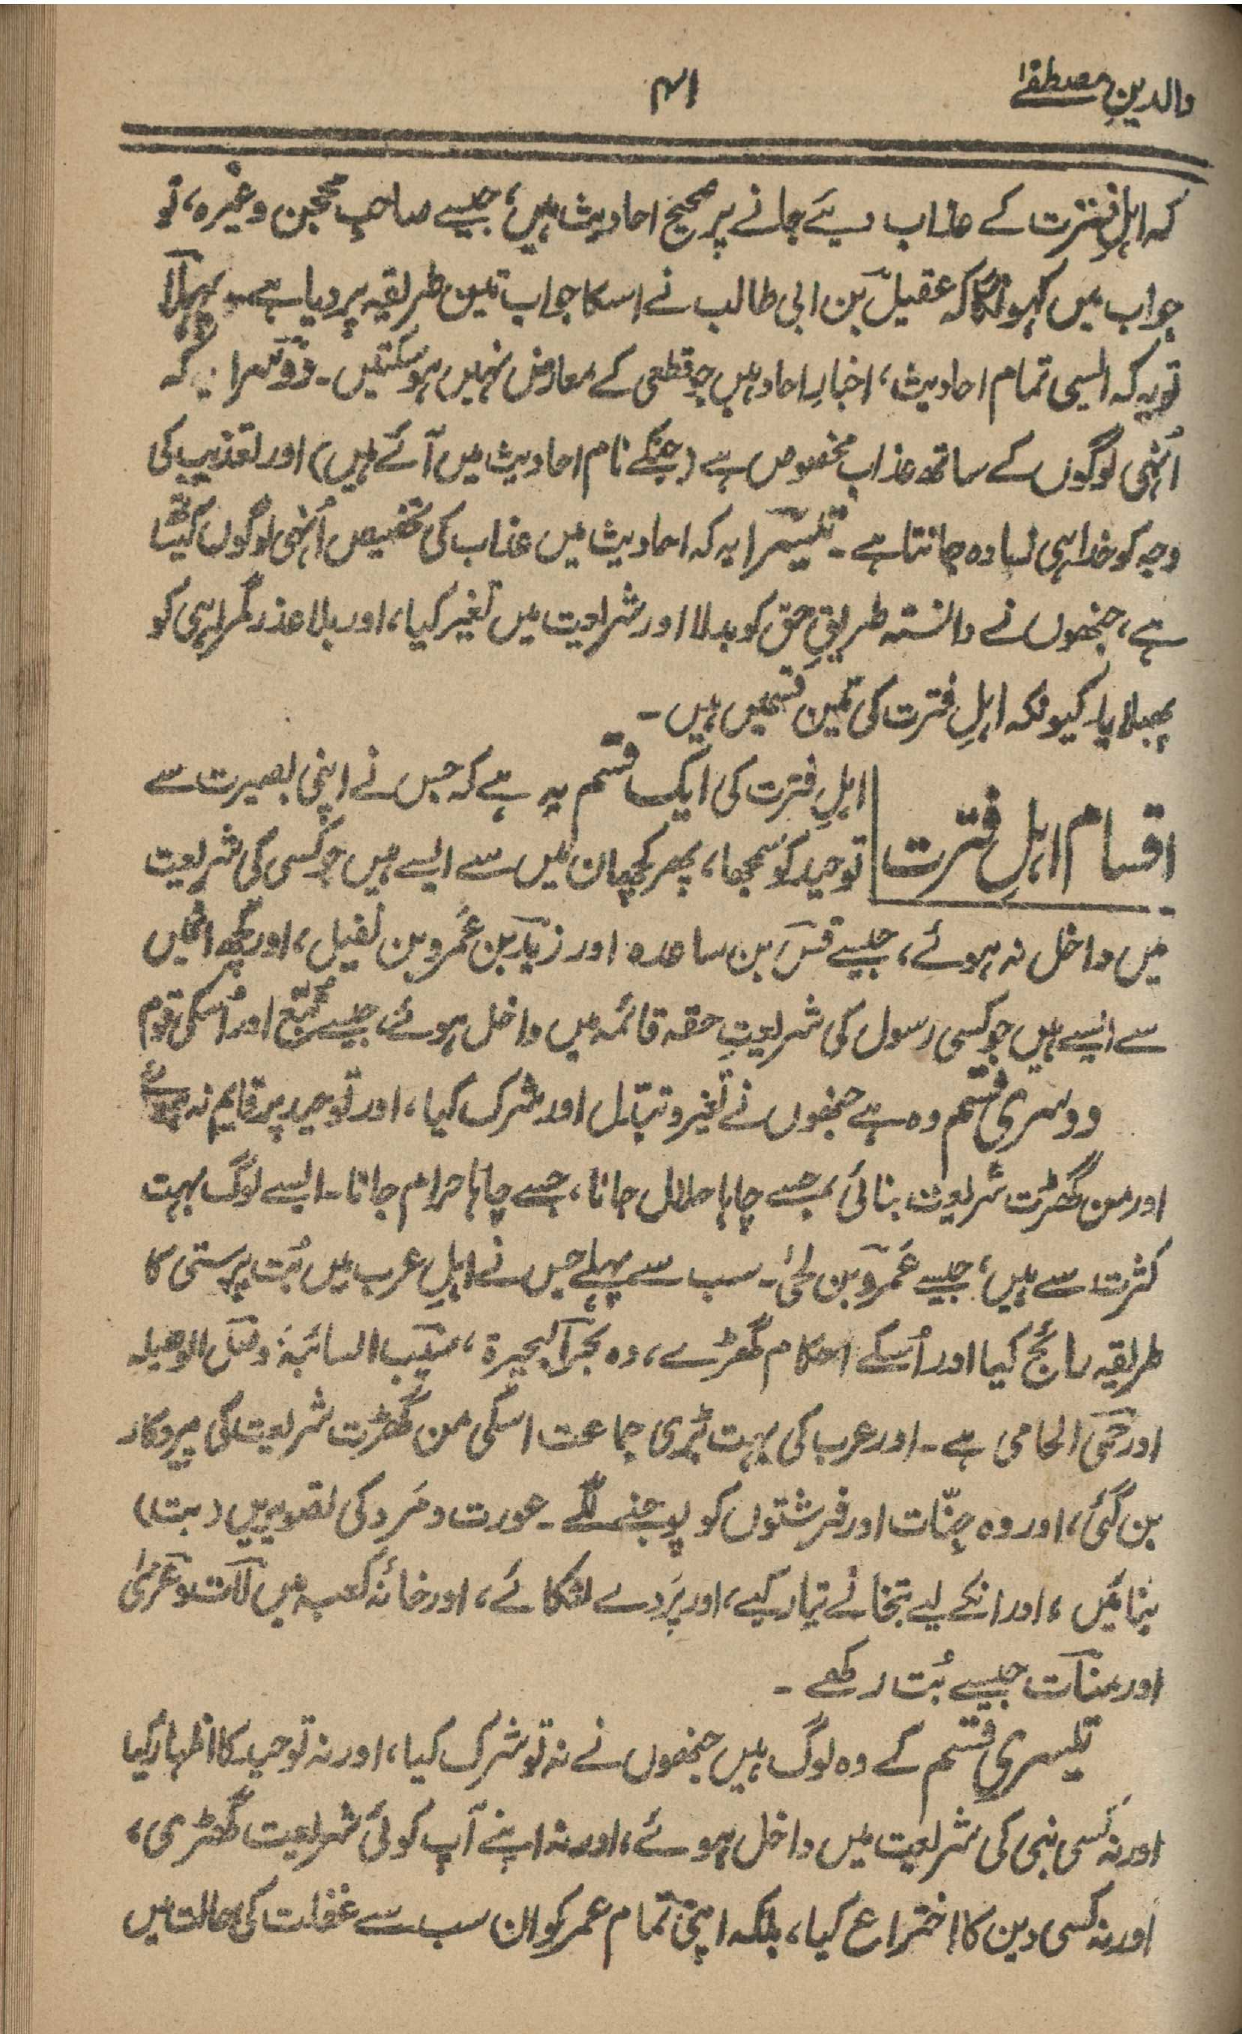 والدینِ مصطفےٰ
۴۱
کہ اہلِ فترت کے عذاب دیئے جانے پر صحیح احادیث ہیں، جیسے صاحبِ محجن وغیرہ، تو
جواب میں کہونگا کہ عقیل بن ابی طالب نے اسکا جواب تین طریقہ پر دیا ہے۔ پہلا
تو یہ کہ ایسی تمام احادیث، اخبارِ احاد ہیں جو قطعی کے معارض نہیں ہوسکتیں۔ دوسرا یہ کہ
اُنہی لوگوں کے ساتھ عذاب مخصوص ہے (جنکے نام احادیث میں آئے ہیں) اور تعذیب کی
وجہ کو خدا ہی زیادہ جانتا ہے۔ تیسرا یہ کہ احادیث میں عذاب کی تخصیص اُنہی لوگوں کیساتھ
ہے، جنھوں نے دانستہ طریقِ حق کو بدلا اور شریعت میں تغیر کیا، اور بلا عذر گمراہی کو
پھیلایا۔ کیونکہ اہلِ فترت کی تین قسمیں ہیں۔
اقسام اہلِ فترت
اہلِ فترت کی ایک قسم یہ ہے کہ جس نے اپنی بصیرت سے
توحید کو سمجھا، پھر کچھ ان میں سے ایسے ہیں جو کسی کی شریعت
میں داخل نہ ہوئے، جیسے قس بن ساعدہ اور زید بن عَمرو بن نفیل، اور کچھ انمیں
سے ایسے ہیں جو کسی رسول کی شریعتِ حقہ قائمہ میں داخل ہوئے، جیسے تُبَّع اور اُسکی قوم
دوسری قسم وہ ہے جنھوں نے تغیر و تبدّل اور شرک کیا، اور توحید پر قایم نہ ہوئے
اور من گھڑت شریعت بنائی، جسے چاہا حلال جانا، جسے چاہا حرام جانا۔ ایسے لوگ بہت
کثرت سے ہیں، جیسے عَمرو بن لحیٰ۔ سب سے پہلے جس نے اہلِ عرب میں بُت پرستی کا
طریقہ رائج کیا اور اُسکے احکام گھڑے، وہ بحرَ البحیرۃ، سیّب السائبۃ، وصل الوصیلہ
اور حمی الحامی ہے۔ اور عرب کی بہت بڑی جماعت اسکی من گھڑت شریعت کی پیروکار
بن گئی، اور وہ جِنّات اور فرشتوں کو پوجنے لگے۔ عورت و مَرد کی تصویریں (بت)
بنائیں، اور انکے لیے بتخانے تیار کیے، اور پَردے لٹکائے، اور خانۂ کعبہ میں لات و عزیٰ
اور منات جیسے بُت رکھے۔
تیسری قسم کے وہ لوگ ہیں جنھوں نے نہ تو شرک کیا، اور نہ توحید کا اظہار کیا
اور نہ کسی نبی کی شریعت میں داخل ہوئے، اور نہ اپنے آپ کوئی شریعت گھڑی،
اور نہ کسی دین کا اختراع کیا، بلکہ اپنی تمام عمر کو ان سب سے غفلت کی حالت میں